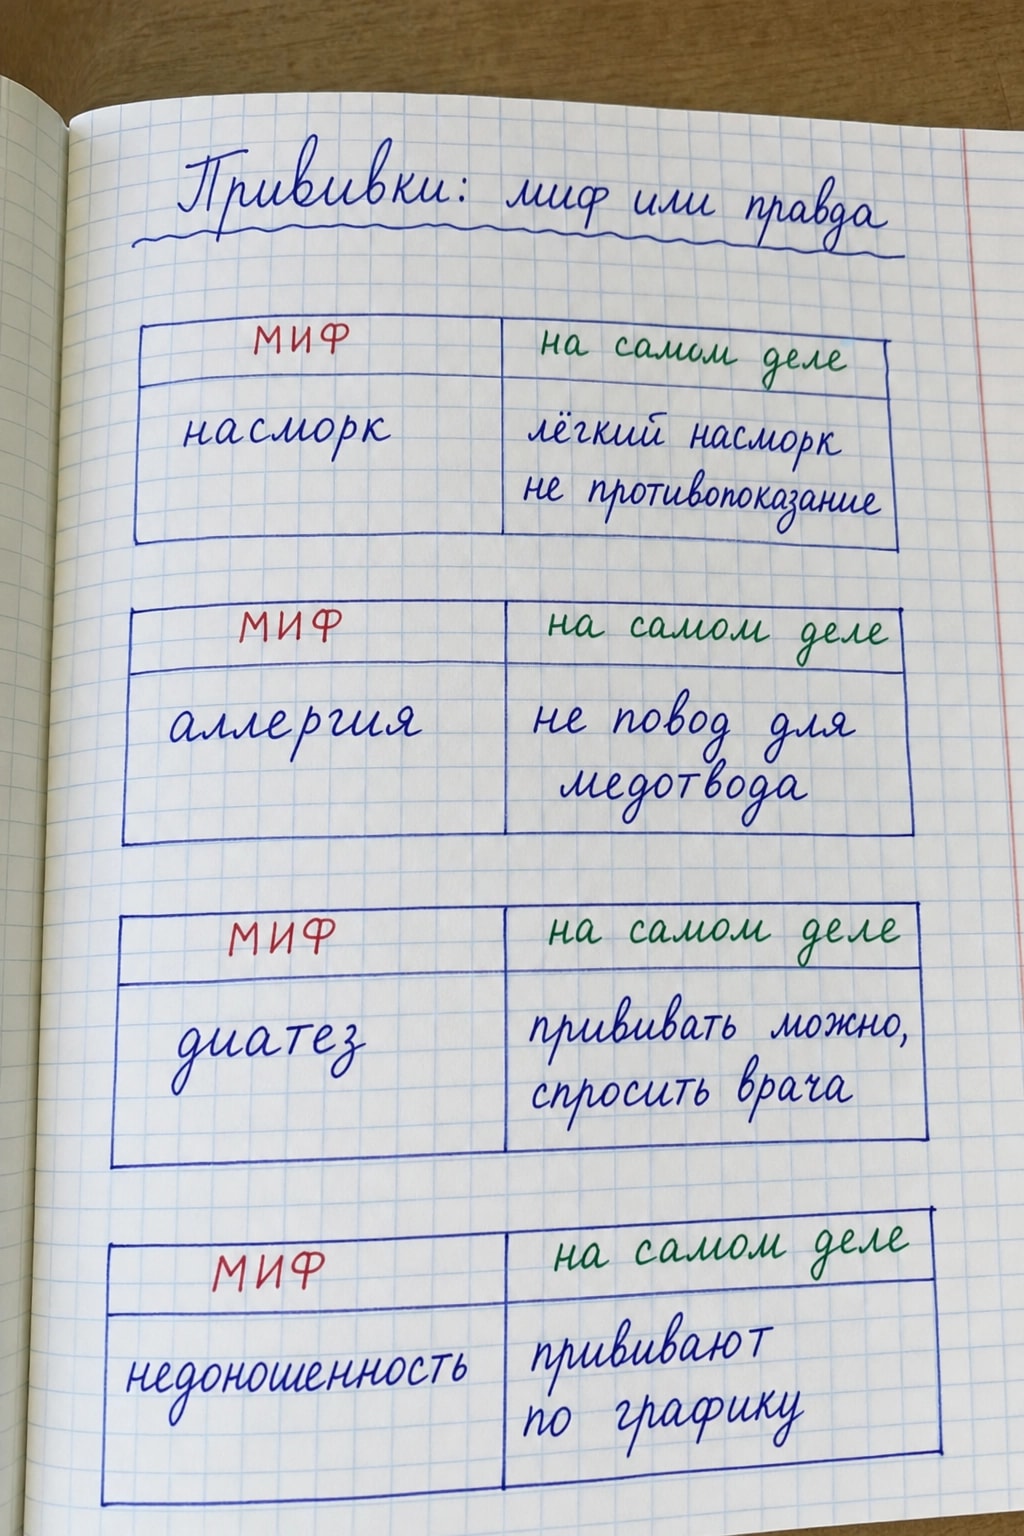 Прививки: миф или правда
МИФ на самом деле
насморк лёгкий насморк
не противопоказание
МИФ на самом деле
аллергия не повод для
медотвода
МИФ на самом деле
диатез прививать можно,
спросить врача
МИФ на самом деле
недоношенность прививают
по графику